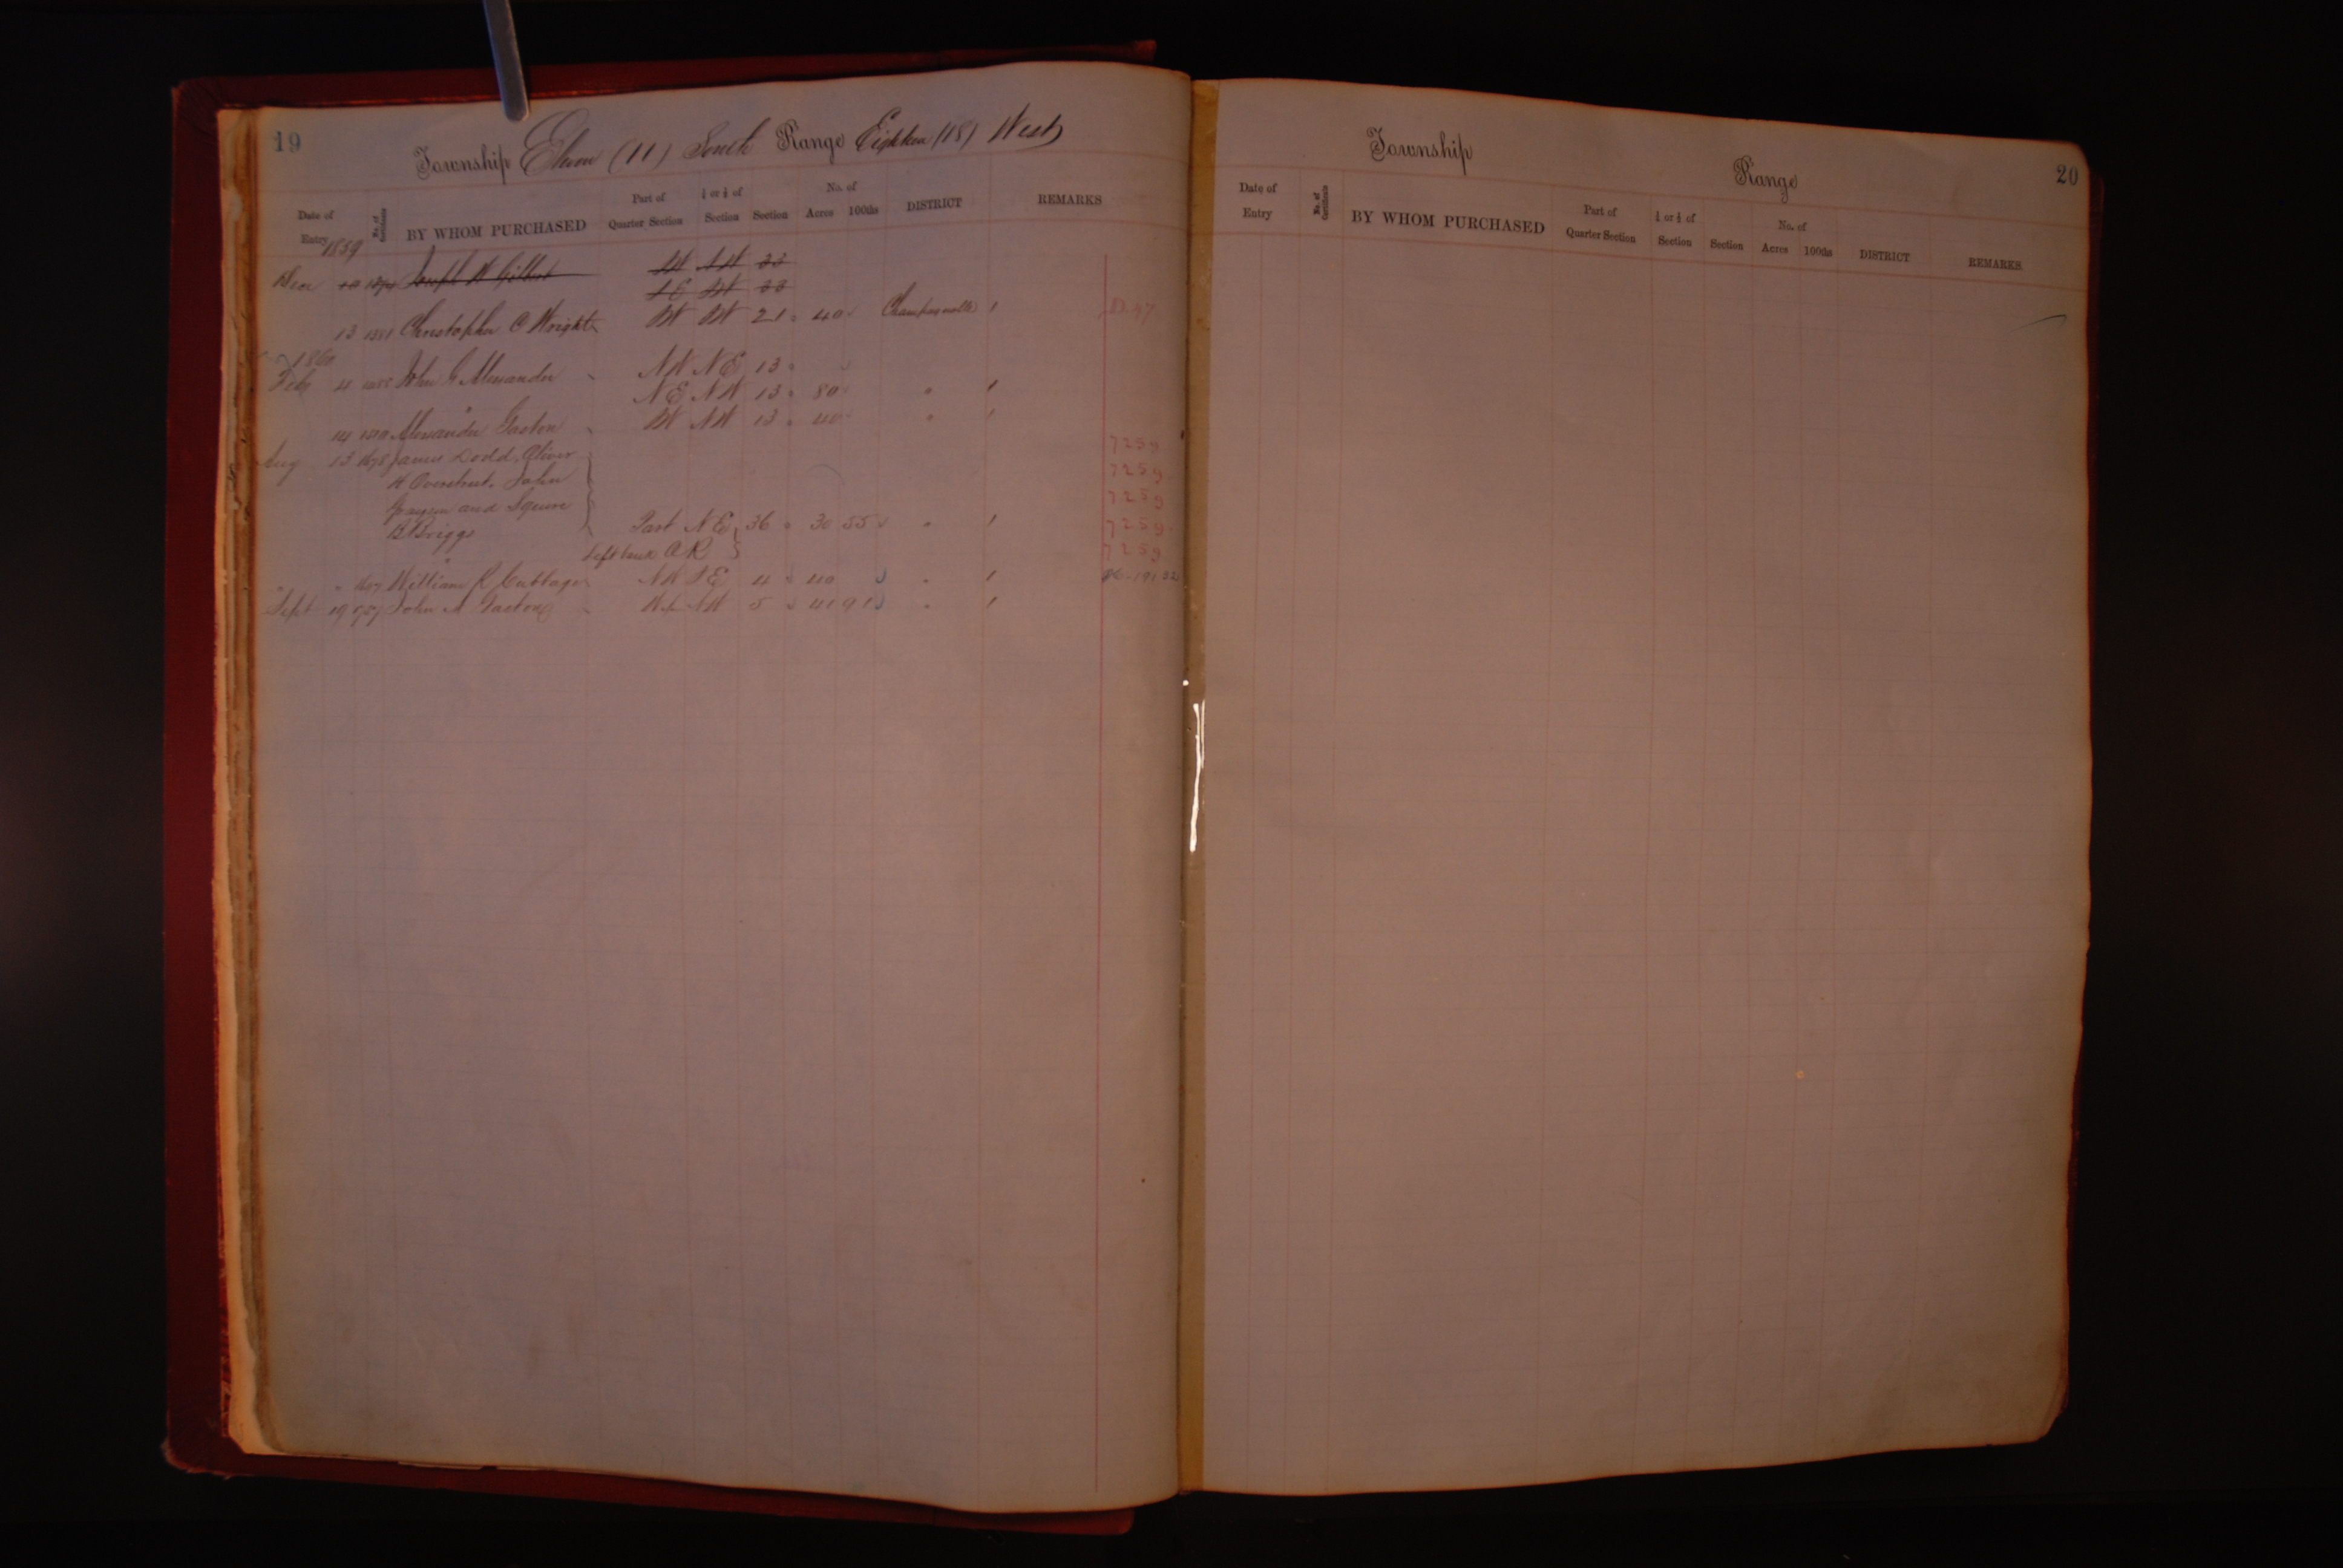 19
Township Eleven (11) South Range Eighteen (18) West
Date of Entry No. of Certificate BY WHOM PURCHASED Part of Quarter Section ¼ or ½ of Section Section No. of Acres 100ths DISTRICT REMARKS
1859
Dec 10 Joseph W Gilbert SW NW 33
SE SW 33
13 1381 Christopher C Wright SW SW 21 40 Champagnolle
1860
Feby 4 John G Alexander NW NE 13
NE NW 13 80 "
14 Alexander Gaston SW NW 13 40 "
Aug 13 1678 James Dodd, Oliver 7259
H Overstreet, John 7259
and Squire 7259
B Briggs Part NE 36 30 55 " 7259
left bank OR 7259
" " William R Cubbage NW SE 4 40 "
Sept 19 John M Gaston NW 5 41 91 "
Township Range
20
Date of Entry No. of Certificate BY WHOM PURCHASED Part of Quarter Section ¼ or ½ of Section Section No. of Acres 100ths DISTRICT REMARKS